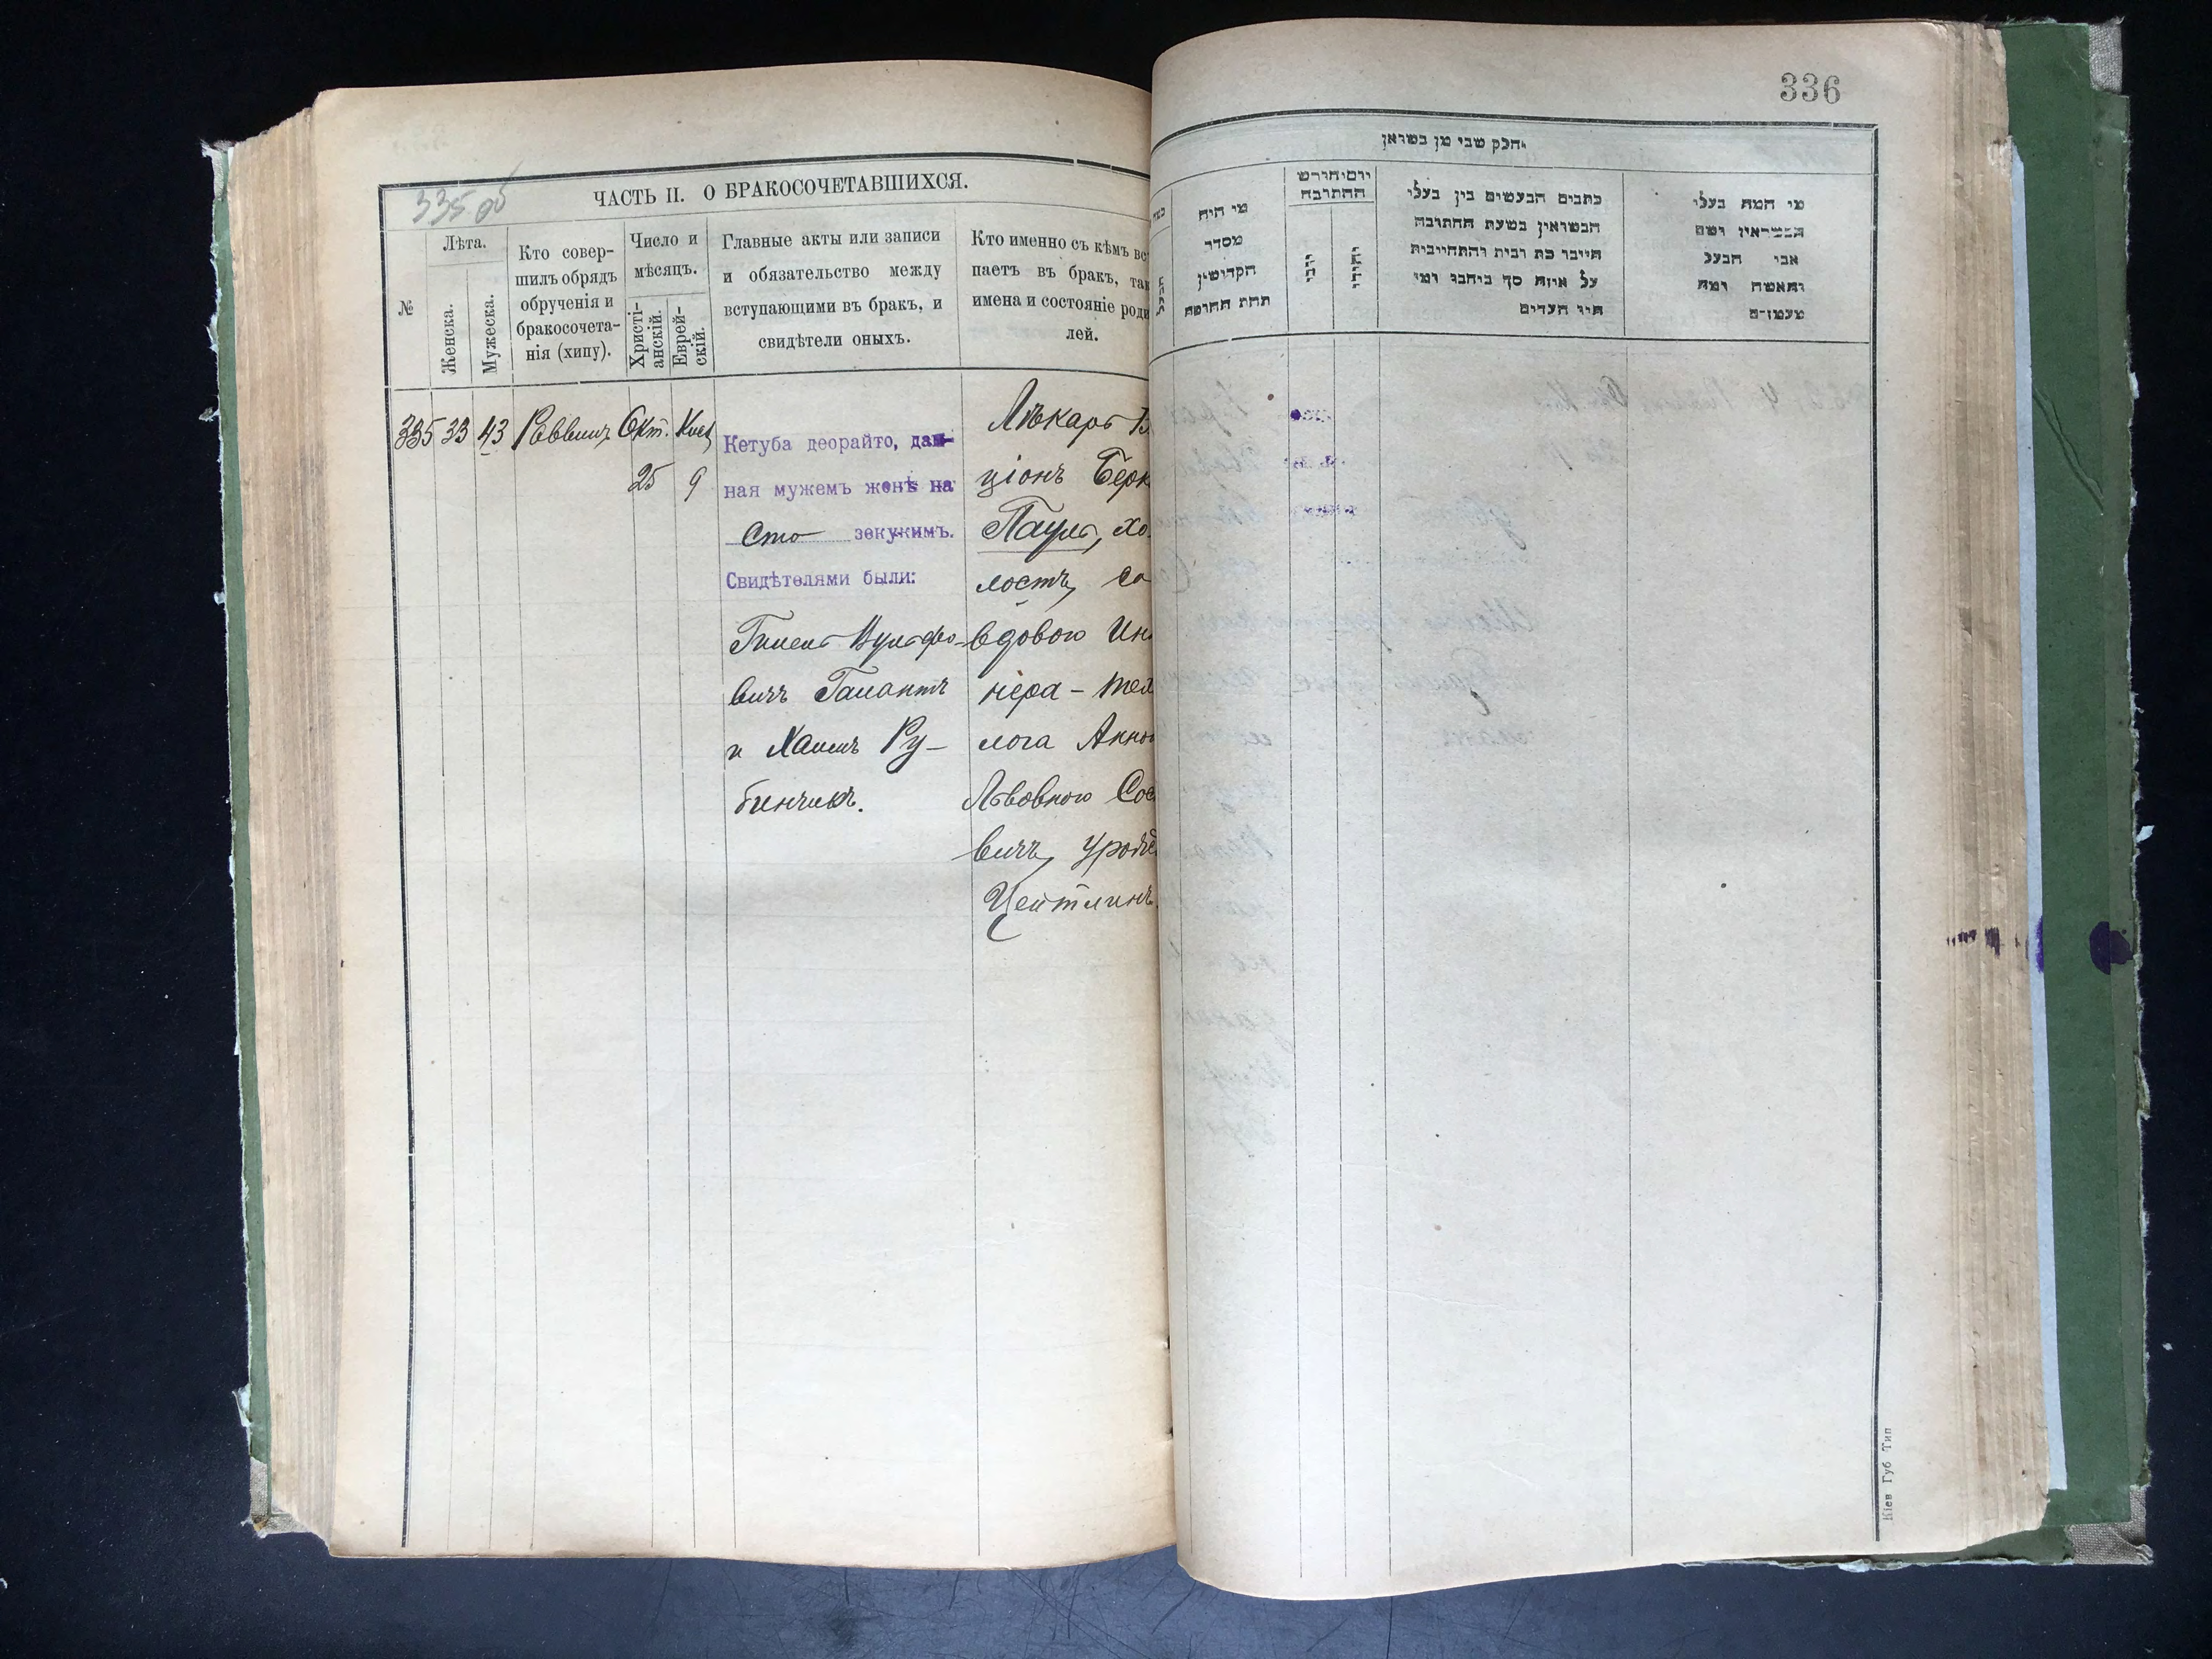 335 об
ЧАСТЬ II. О БРАКОСОЧЕТАВШИХСЯ.
№
Лѣта.
Женска.
Мужеска.
Кто совер-
шилъ обрядъ
обрученія и
бракосочета-
нія (хипу).
Число и
мѣсяцъ.
Христі-
анскій.
Еврей-
скій.
Главные акты или записи
и обязательство между
вступающими въ бракъ, и
свидѣтели оныхъ.
Кто именно съ кѣмъ вс
паетъ въ бракъ, так
имена и состояніе роди
лей.
335 33 43 Раввинъ Окт.
25 9
Кетуба деорайто, дан-
ная мужемъ женѣ на
Сто зекукимъ.
Свидѣтелями были:
Гилель Вульфо-
вичъ Галантъ
и Хаимъ Ру-
бинчикъ.
Лѣкарь
ціонъ Берк
Пауль, хо
лостъ, со
вдовою Ин
нера-тех
лога Анно
Львовною Сос
вичъ, урожд
Цейтлинъ.
336
חלק שני מן
מי היה
מסדר
הקדושין
תחת החופה
הבעל
יום וחודש
החתונה
יהודי
כתבים הנעשים בין בעלי
הנשואין בשעת החתונה
חייבו כת ובית והתחייבות
על איזה סך ביחבו ומי
היו העדים
מי המה בעלי
הנשואין ושם
אבי הבעל
והאשה ומה
מעמדם
Кіев Губ Тип